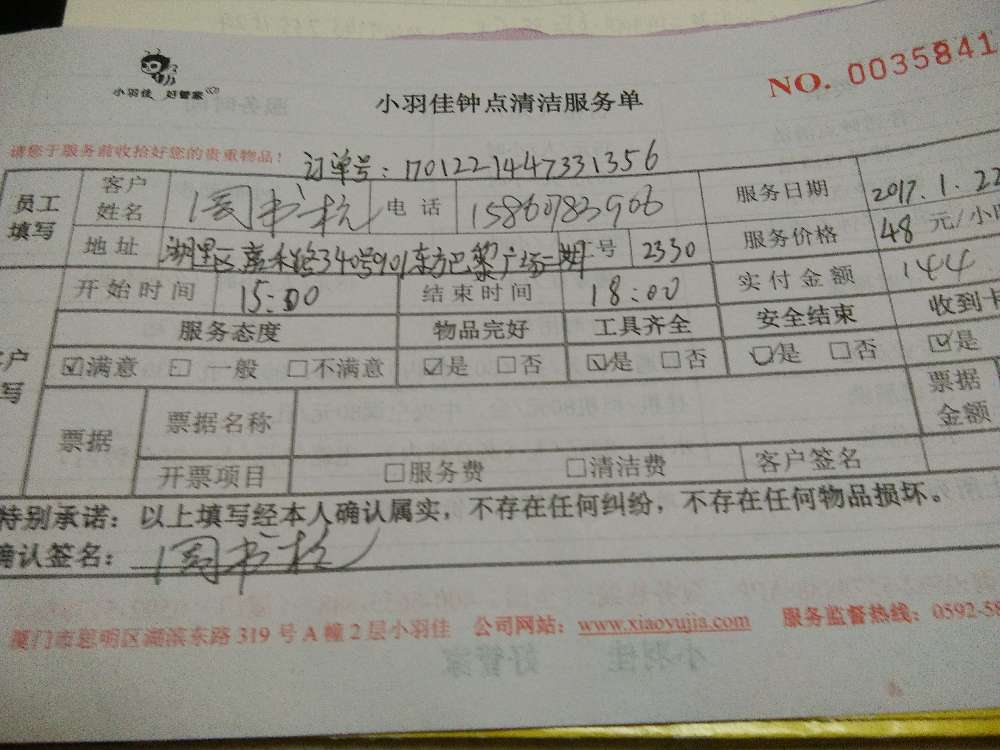 小羽佳 好管家
小羽佳钟点清洁服务单
NO. 0035841
请您于服务前收拾好您的贵重物品!
订单号:1701221447331356
员工填写 客户姓名 周书 电话 15860783906 服务日期 2017.1.22
地址 湖里区 340号901东方巴黎广场二期 号 2330 服务价格 48 元/小
开始时间 15:00 结束时间 18:00 实付金额 144
服务态度 物品完好 工具齐全 安全结束 收到卡
☑满意 □一般 □不满意 ☑是 □否 ☑是 □否 ☑是 □否 ☑是
票据 票据名称 票据金额
开票项目 □服务费 □清洁费 客户签名
特别承诺:以上填写经本人确认属实,不存在任何纠纷,不存在任何物品损坏。
确认签名:周书
厦门市思明区湖滨东路319号A幢2层小羽佳 公司网站:www.xiaoyujia.com 服务监督热线:0592-58